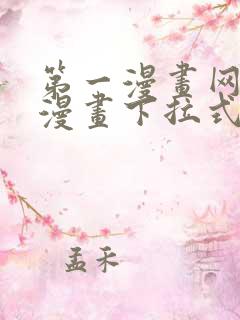 第一漫畫网
漫畫下拉式
孟禾